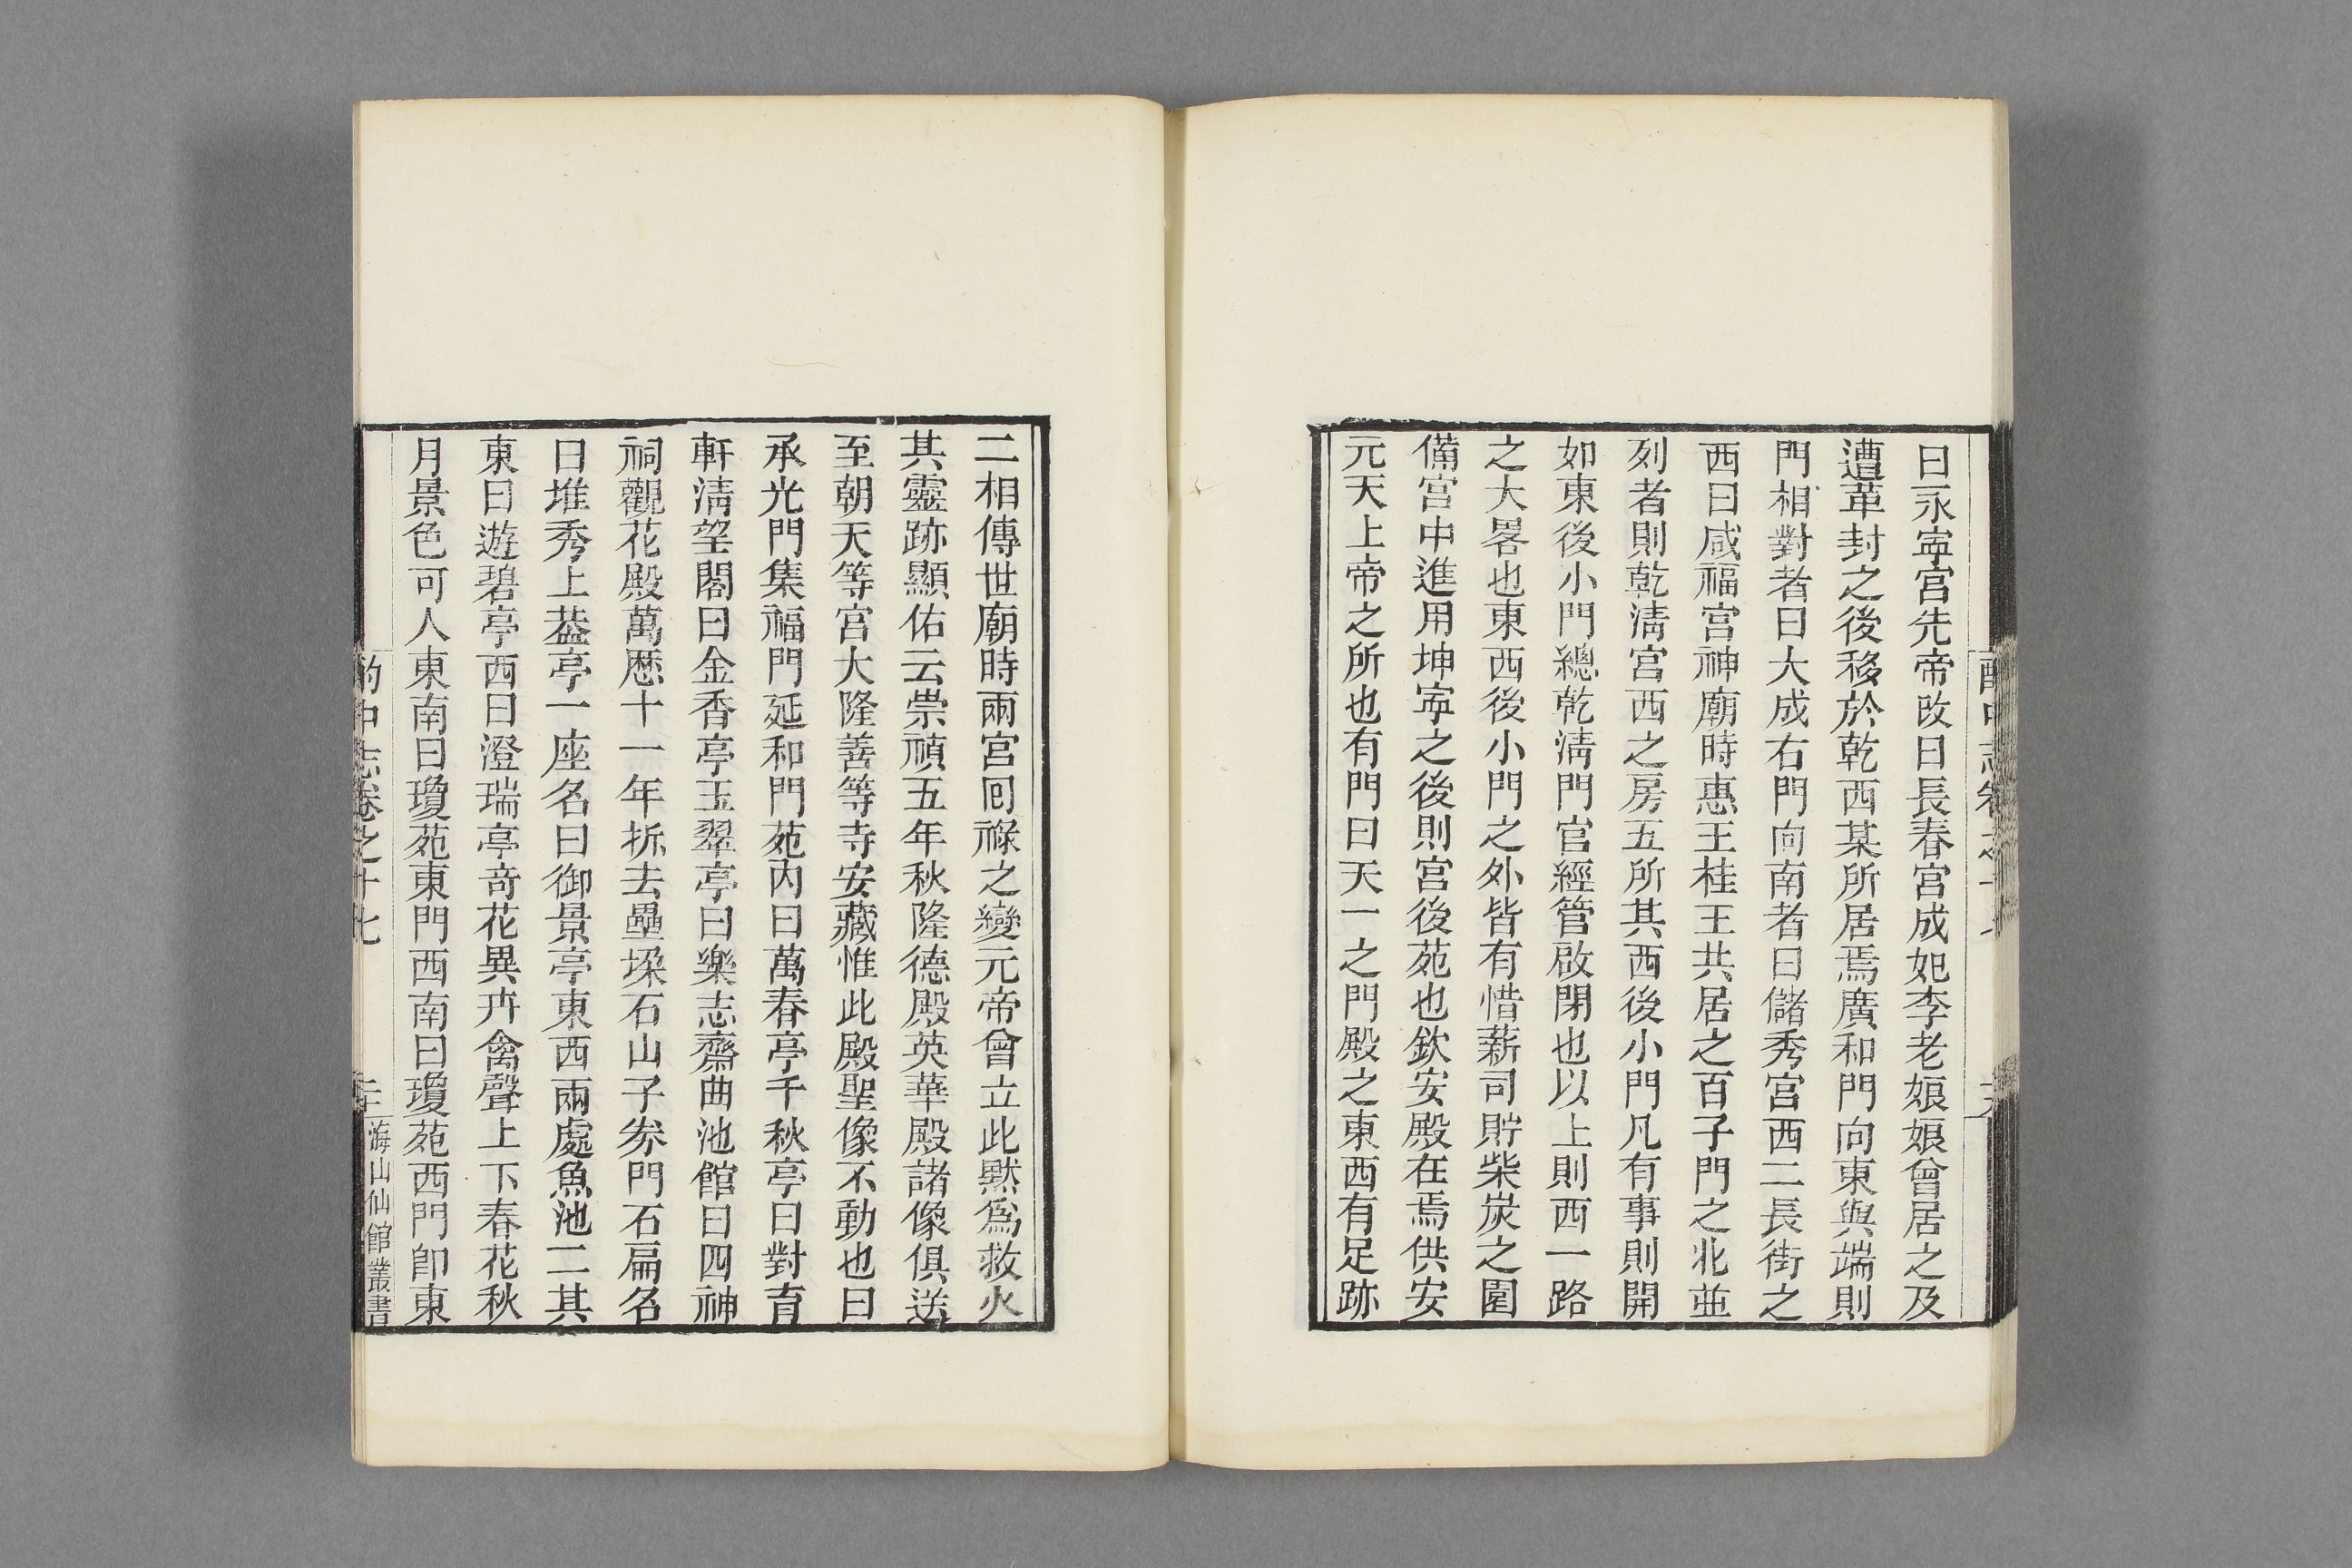 曰永寧宮先帝改曰長春宮成妃李老娘娘曾居之及
遭革封之後移於乾西某所居焉廣和門向東與端則
門相對者曰大成右門向南者曰儲秀宮西二長街之
西曰咸福宮神廟時惠王桂王共居之百子門之北並
列者則乾淸宮西之房五所其西後小門凡有事則開
如東後小門總乾淸門官經管啟閉也以上則西一路
之大畧也東西後小門之外皆有惜薪司貯柴炭之圍
備宮中進用坤寧之後則宮後苑也欽安殿在焉供安
元天上帝之所也有門曰天一之門殿之東西有足跡
二相傳世廟時兩宮回祿之變元帝曾立此默爲救火
其靈跡顯佑云崇禎五年秋隆德殿英華殿諸像俱送
至朝天等宮大隆善等寺安藏惟此殿聖像不動也曰
承光門集福門延和門苑內曰萬春亭千秋亭曰對育
軒淸望閣曰金香亭玉翠亭曰樂志齋曲池館曰四神
祠觀花殿萬歷十一年拆去壘垜石山子券門石扁名
曰堆秀上葢亭一座名曰御景亭東西兩處魚池二其
東曰遊碧亭西曰澄瑞亭奇花異卉禽聲上下春花秋
月景色可人東南曰瓊苑東門西南曰瓊苑西門卽東
酌中志卷之十七
海山仙館叢書